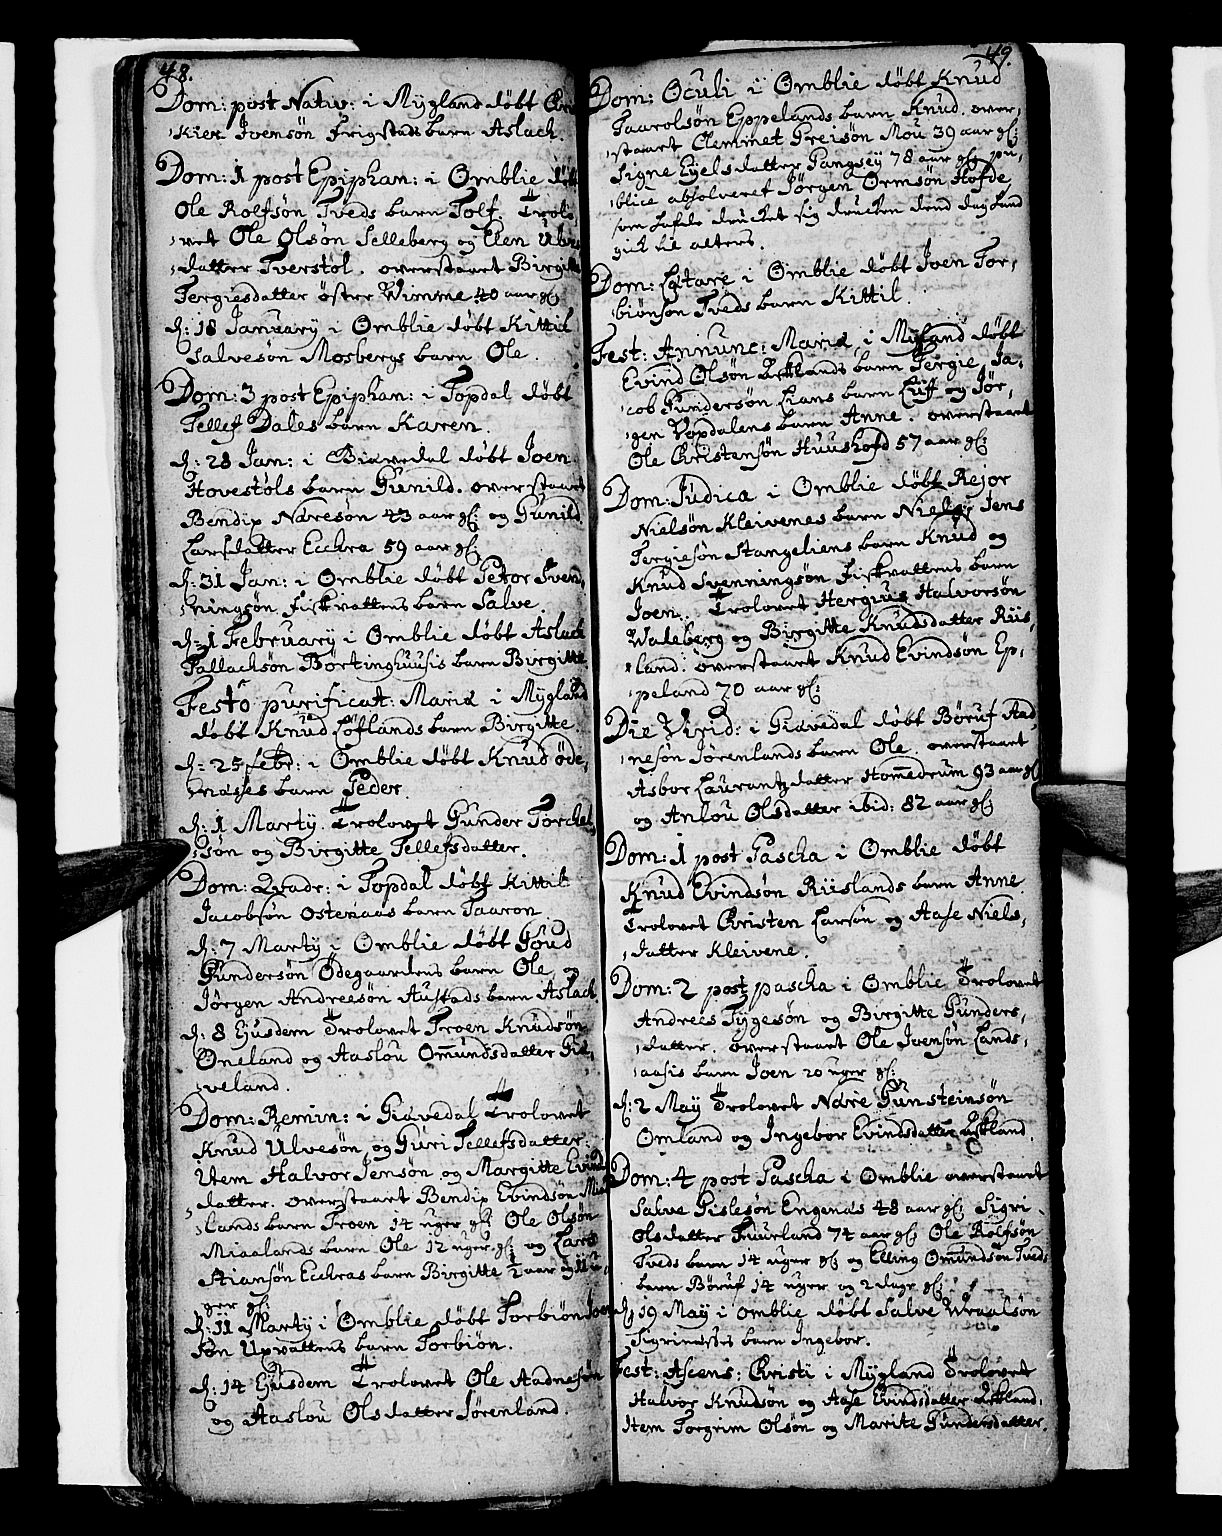 48.
Dom: post Nativ: i Mygland döbt
Kier Joensön Frigstads barn Aslach.
Dom: 1 post Epiphan: i Omblie döbt
Ole Rolfsön Tveds barn Tolf. Trolo,
,vet Ole Olsön Selleberg og Elen Ulvs
datter Tverstöl. overstaaet Birgitte
Tergiesdatter öster Wimme 40 aar gl:
d: 18 January i Omblie döbt Kittil
Salvesön Mosbergs barn Ole.
Dom: 3 post Epiphan: i Topdal döbt
Tellef Dales barn Karen.
d: 28 Jan: i Giævedal döbt Joen
Hovestöls barn Gunild. overstaaet
Bendix Naresön 43 aar gl: og Gunild
Larsdatter Eschra 59 aar gl:
d: 31 Jan: i Omblie döbt Petor Sven,
,ningsön Fiskvattens barn Salve.
d: 1 February i Omblie döbt Aslach
Tallachsön Börtinghuusis barn Birgitte.
Festo purificat: Mariæ i Mygland
döbt Knud Löflands barn Birgitte.
d: 25 febr: i Omblie döbt Knud öde,
,næsses barn Peder.
d: 1 Marty. Trolovet Gunder Torchel,
,sön og Birgitte Tellefsdatter.
Dom: Qvadr: i Topdal döbt Kittil
Jacobsön Osteraas barn Taaron
d: 7 Marty i Omblie döbt Goud
Gundersön Ödegaardens barn Ole og
Jörgen Andreesön Austads barn Aslach
d: 8 Ejusdem Trolovet Troen Knudsön
Oneland og Aaslou Omundsdatter Gie,
,veland.
Dom: Remin: i Giævedal Trolovet
Knud Ulvesön og Guri Tellefsdatter.
Item Halvor Jensön og Margitte Evind
datter. overstaaet Bendix Evindsön Mia
,lands barn Troen 14 uger gl: Ole Olsön
Miaalands barn Ole 12 uger gl: og Lars
Stiansön Eschras barn Birgitte ½ aar og 11 u,
ger gl:
d: 11 Marty i Omblie döbt Torbiön Joen
sön Upvattens barn Torbiön.
d: 14 Ejusdem Trolovet Ole Aadnesön
og Aaslou Olsdatter Jörenland.
49.
Dom: Oculi i Omblie döbt Knud
Taarolsön Eppelands barn Knud. over,
,staaet Clemmet Greisön Mou 39 aar gl:
Signe Eyelsdatter Gangsey 78 aar gl: pu,
,blice absolveret Jörgen Ormsön Hofde
som hafde drucket sig drucken dend dag hand
gik til alters.
Dom: Lætare i Omblie döbt Joen Tor,
biönsön Tveds barn Kittil.
Fest: Annunc: Mariæ i Mygland döbt
Evind Olsön Askelands barn Tergie, Ja,
,cob Gundersön Lians barn Liff og Jör,
,gen Vopdalens barn Anne. overstaaet
Ole Christensön Huushofd 57 aar gl:
Dom: Judica i Omblie döbt Rejor
Nielsön Kleivenes barn Niels, Jens
Tergiesön Stangeliens barn Knud og
Knud Svenningsön Fiskvattens barn
Joen. Trolovet Hergius Halvorsön
Waleberg og Birgitte Knudsdatter Riis,
,land. overstaaet Knud Evindsön Ep,
,peland 70 aar gl:
Die Virid: i Giævedal döbt Böruf Aad
nesön Jörenlands barn Ole. overstaaet
Asbor Laurantzdatter Hommedrum 93 aar gl:
og Anlou Olsdatter ibid: 82 aar gl:
Dom: 1 post Pascha i Omblie döbt
Knud Evindsön Riislands barn Anne
Trolovet Christen Larsön og Aase Niels,
,datter Kleivene.
Dom: 2 post pascha i Omblie Trolovet
Andrees Tygesön og Birgitte Gunders,
,datter. overstaaet Ole Joensön Lands,
,aasis barn Joen 20 uger gl:
d: 2 May Trolovet Nare Gunsteinsön
Omland og Ingebor Evindsdatter Askland.
Dom: 4 post Pascha i Omblie overstaaet
Salve Gislesön Engenæs 48 aar gl: Sigri
Olsdatter Fuurland 74 aar gl: Ole Rolfsön
Tveds barn 14 uger gl: og Elling Omundsön Tveds
barn Böruf 14 uger og 2 dage gl:
d: 19 May i Omblie döbt Salve Wraalsön
Sigrinæsses barn Ingebor.
Fest: Ascens: Christi i Mygland Trolovet
Halvor Knudsön og Aase Evindsdatter Askland.
Item Torgrim Olsön og Marite Gundersdatter.